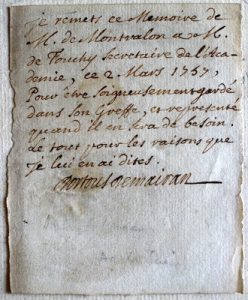 Je remets ce Memoire de
M. de Montvalon a M.
de Fouchy Secretaire de l'Aca-
demie, ce 2 Mars 1757,
Pour être soigneusement gardé
dans son Greffe, et representé
quand il en sera de besoin.
de tout pour les raisons que
Je lui en ai dites.
Dortous de mairan